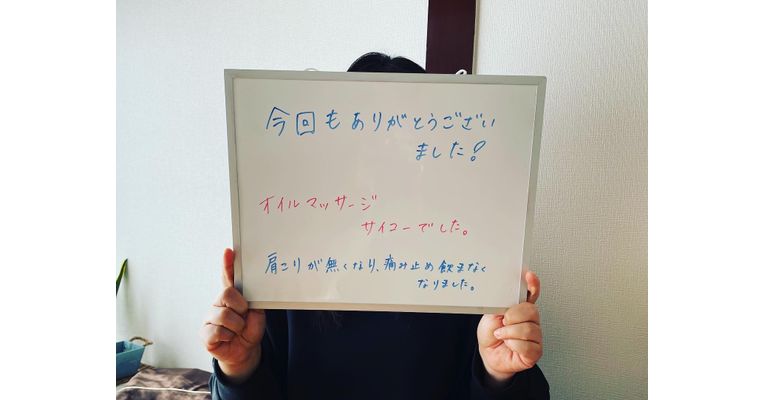 今回もありがとうござい
ました!
オイルマッサージ
サイコーでした。
肩こりが無くなり、痛み止め飲まなく
なりました。